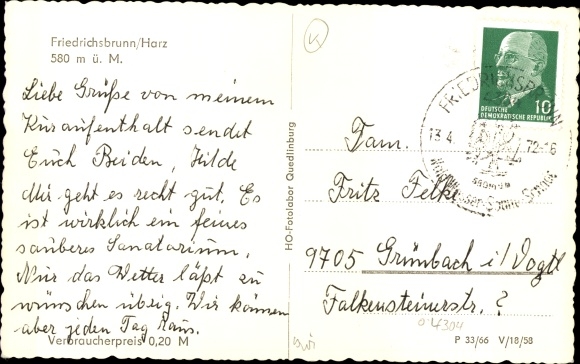 Friedrichsbrunn/Harz
580 m ü. M.
Liebe Grüße von meinem
Kuraufenthalt sendet
Euch Beiden, Hilde
Mir geht es recht gut, Es
ist wirklich ein feines
sauberes Sanatorium,
Nur das Wetter läßt zu
wünschen übrig. Wir können
aber jeden Tag raus.
Verbraucherpreis 0,20 M
HO-Fotolabor Quedlinburg
DEUTSCHE
DEMOKRATISCHE REPUBLIK
10
FRIEDRICHSBRUNN
13.4. 72-16
Fam.
Fritz Felke
9705 Grünbach i/Vogtl
Falkensteinerstr. ?
P 33/66 V/18/58